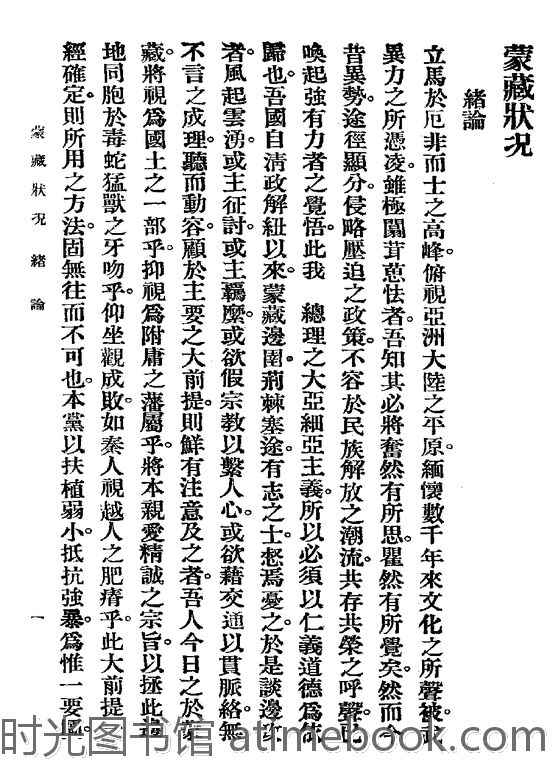 蒙藏狀況
緒論
立馬於厄非而士之高峰。俯視亞洲大陸之平原。緬懷數千年來文化之所聲被。
異力之所憑凌。雖極闒茸葸怯者。吾知其必將奮然有所思。瞿然有所覺矣。然而今
昔異勢。途徑顯分。侵略壓迫之政策。不容於民族解放之潮流。共存共榮之呼聲。
喚起強有力者之覺悟。此我　總理之大亞細亞主義。所以必須以仁義道德爲依
歸也。吾國自清政解紐以來。蒙藏邊圉。荊棘塞途。有志之士。惄焉憂之。於是談邊
者。風起雲湧。或主征討。或主羈縻。或欲假宗教以繫人心。或欲藉交通以貫脈絡。無
不言之成理。聽而動容。顧於主要之大前提。則鮮有注意及之者。吾人今日之於蒙
藏。將視爲國土之一部乎。抑視爲附庸之藩屬乎。將本親愛精誠之宗旨。以拯此邊
地同胞於毒蛇猛獸之牙吻乎。仰坐觀成敗。如秦人視越人之肥瘠乎。此大前提一
經確定。則所用之方法。固無往而不可也。本黨以扶植弱小。抵抗強暴。爲惟一要
蒙藏狀況　緒論
一
时光图书馆 atimebook.com